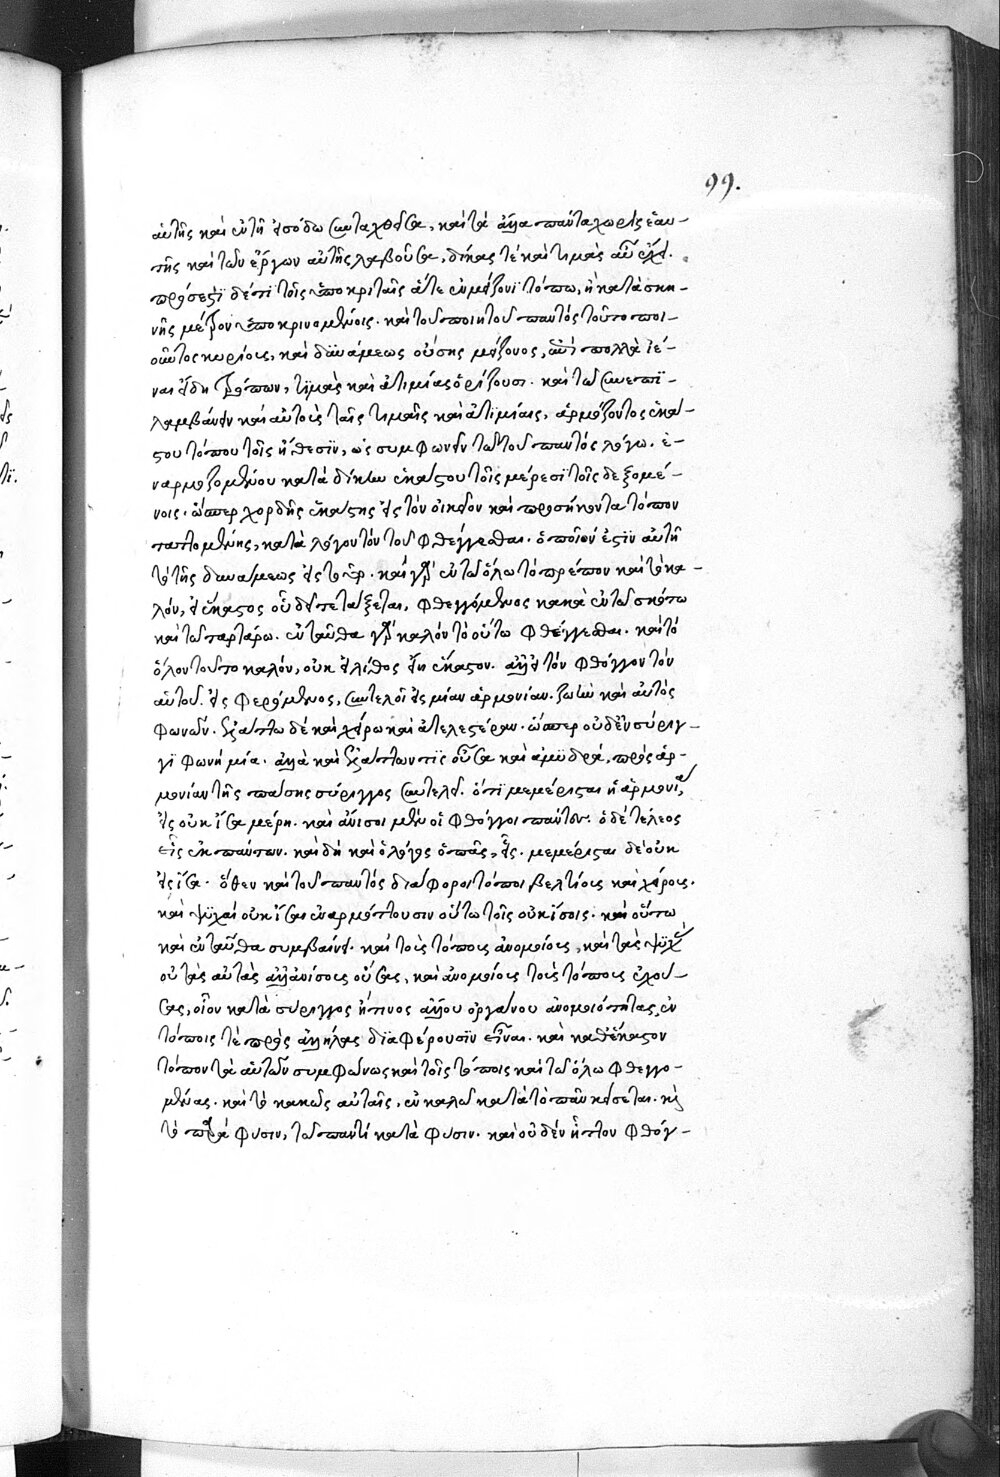 99.
αὐτῆς καὶ ἐν τῆ εἰσόδω συνταχθεῖσα, καὶ τὰ ἄλλα πάντα χωρὶς ἑαυ-
τῆς καὶ τῶν ἔργων αὐτῆς λαβοῦσα, δίκας τὲ καὶ τιμὰς αὖ ἔχει.
πρόσεστι δέ τι τοῖς ὑποκριταῖς ἅτε ἐν μείζονι τόπω, ἢ κατὰ σκη-
νῆς μέτρον ὑποκρινομένοις. καὶ τοῦ ποιητοῦ παντὸς τοῦτο ποι-
οῦντος κυρίους, καὶ δυνάμεως οὔσης μείζονος, ἐπὶ πολλὰ ἰέ-
ναι εἴδη τρόπων, τιμὰς καὶ ἀτιμίας ὁρίζουσι. καὶ τῶ συνεπι-
λαμβάνειν καὶ αὐτοὺς ταῖς τιμαῖς καὶ ἀτιμίαις, ἁρμόζοντος ἑκάσ-
του τόπου τοῖς ἤθεσιν, ὡς συμφωνεῖν τῶ τοῦ παντὸς λόγω. ἐ-
ναρμοζομένου κατὰ δίκην ἑκάστου τοῖς μέρεσι τοῖς δεξομέ-
νοις. ὥσπερ χορδῆς ἑκάστης εἰς τὸν οἰκεῖον καὶ προσήκοντα τόπον
ταττομένης, κατὰ λόγον τὸν τοῦ φθέγγεσθαι. ὁποῖόν ἐστιν αὐτῆ
τὸ τῆς δυνάμεως εἰς τοῦτο. καὶ γὰρ ἐν τῶ ὅλω τὸ πρέπον καὶ τὸ κα-
λόν, εἰ ἕκαστος οὗ δεῖ τετάξεται, φθεγγόμενος κακὰ ἐν τῶ σκότω
καὶ τῶ ταρτάρω. ἐνταῦθα γὰρ καλὸν τὸ οὕτω φθέγγεσθαι. καὶ τὸ
ὅλον τοῦτο καλόν, οὐκ εἰ λίθος εἴη ἕκαστον. ἀλλ' εἰ τὸν φθόγγον τὸν
αὑτοῦ εἰσφερόμενος, συντελοῖ εἰς μίαν ἁρμονίαν. ζωὴν καὶ αὐτὸς
φωνῶν. ἐλάττω δὲ καὶ χείρω καὶ ἀτελεστέραν. ὥσπερ οὐδ' ἐν σύριγ-
γι φωνὴ μία. ἀλλὰ καὶ ἐλάττων τις οὖσα καὶ ἀμυδρά, πρὸς ἁρ-
μονίαν τῆς πάσης σύριγγος συντελεῖ. ὅτι μεμέρισται ἡ ἁρμονία
εἰς οὐκ ἴσα μέρη. καὶ ἄνισοι μὲν οἱ φθόγγοι πάντες. ὁ δὲ τέλεος
εἷς ἐκ πάντων. καὶ δὴ καὶ ὁ λόγος ὁ πᾶς, εἷς. μεμέρισται δὲ οὐκ
εἰς ἴσα. ὅθεν καὶ τοῦ παντὸς διάφοροι τόποι βελτίους καὶ χείρους.
καὶ ψυχαὶ οὐκ ἴσαι ἐναρμόττουσιν οὕτω τοῖς οὐκ ἴσοις. καὶ οὕτω
καὶ ἐνταῦθα συμβαίνει. καὶ τοὺς τόπους ἀνομοίους, καὶ τὰς ψυχὰς
οὐ τὰς αὐτὰς ἀλλ' ἀνίσους οὔσας, καὶ ἀνομοίους τοὺς τόπους ἐχού-
σας, οἷον κατὰ σύριγγος ἤ τινος ἄλλου ὀργάνου ἀνομοιότητας, ἐν
τόποις τὲ πρὸς ἀλλήλας διαφέρουσιν εἶναι. καὶ καθ' ἕκαστον
τόπον τὰ αὑτῶν συμφώνως καὶ τοῖς τόποις καὶ τῶ ὅλω φθεγγο-
μένας. καὶ τὸ κακῶς αὐταῖς, ἐν καλῶ κατὰ τὸ πᾶν κείσεται. καὶ
τὸ παρὰ φύσιν, τῶ παντὶ κατὰ φύσιν. καὶ οὐδὲν ἧττον φθόγ-